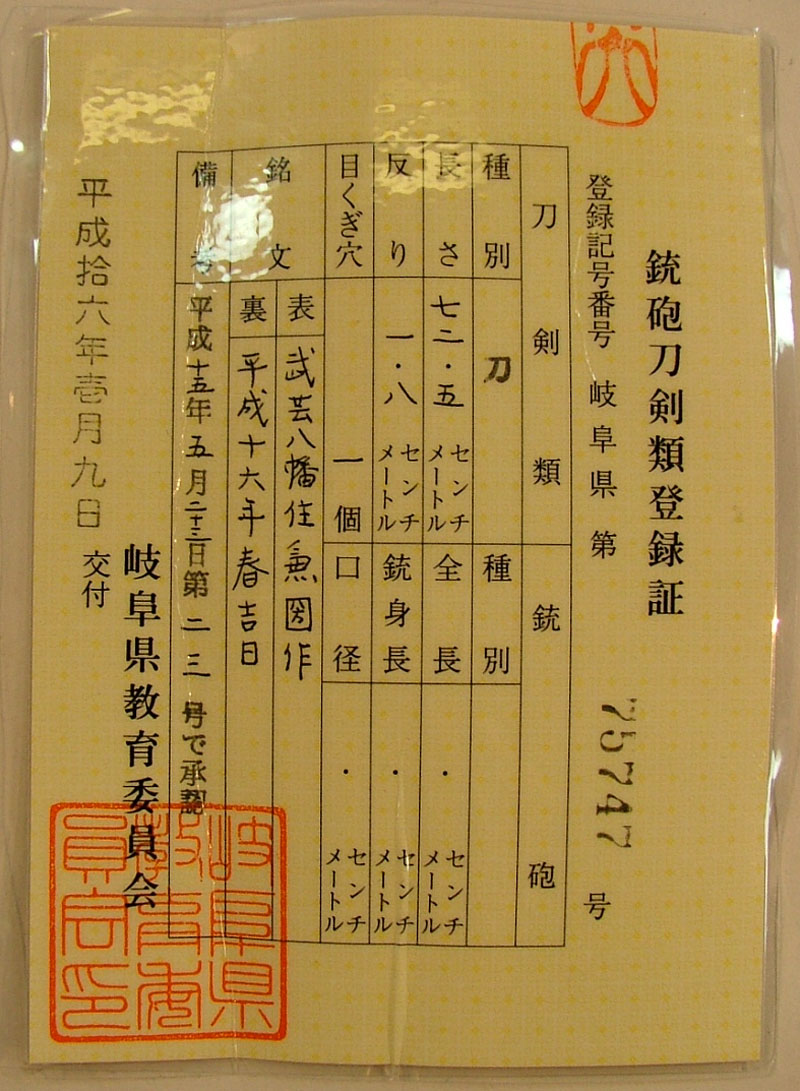 銃砲刀剣類登録証
登録記号番号 岐阜県 第 75747 号
刀剣類
種別 刀
長さ 七二・五 センチメートル
反り 一・八 センチメートル
目くぎ穴 一個
銃砲
種別
全長 ・ センチメートル
銃身長 ・ センチメートル
口径 ・ センチメートル
銘文
表 武芸八幡住兼圀作
裏 平成十六年春吉日
備考 平成十五年五月二十三日第二三号で承認
平成拾六年壱月九日 交付
岐阜県教育委員会
岐阜県教育委員会印